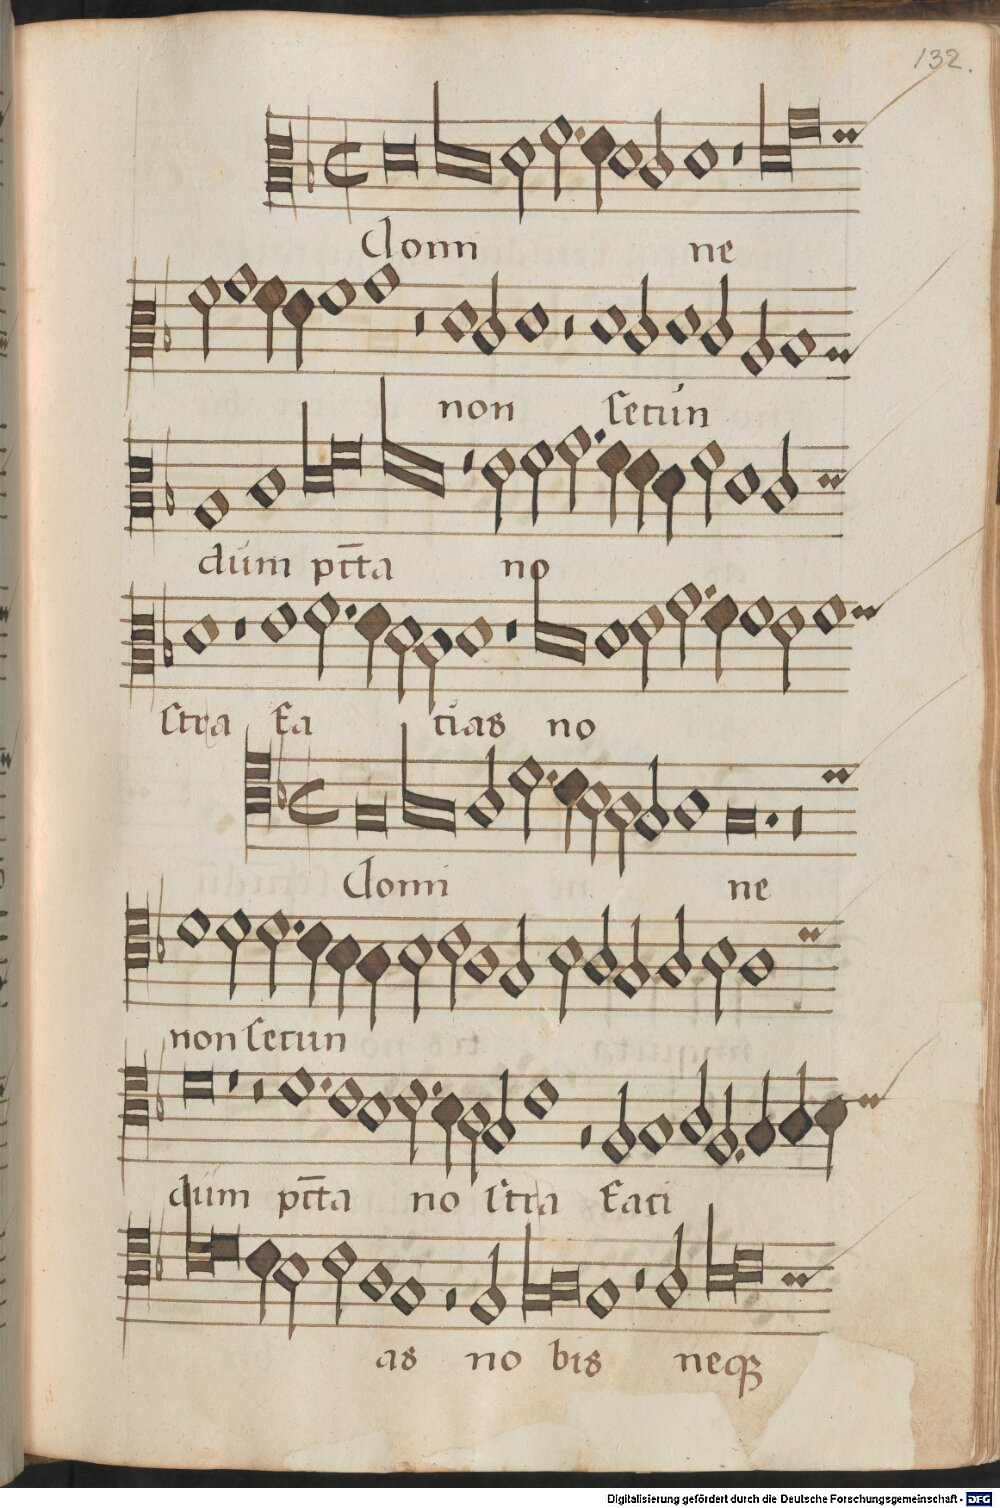 132.
Domi ne
non secun
dum pcc̄ta no
stra fa cias no
Domi ne
non secun
dum pcc̄ta no stra faci
as no bis neqȝ
Digitalisierung gefördert durch die Deutsche Forschungsgemeinschaft - DFG